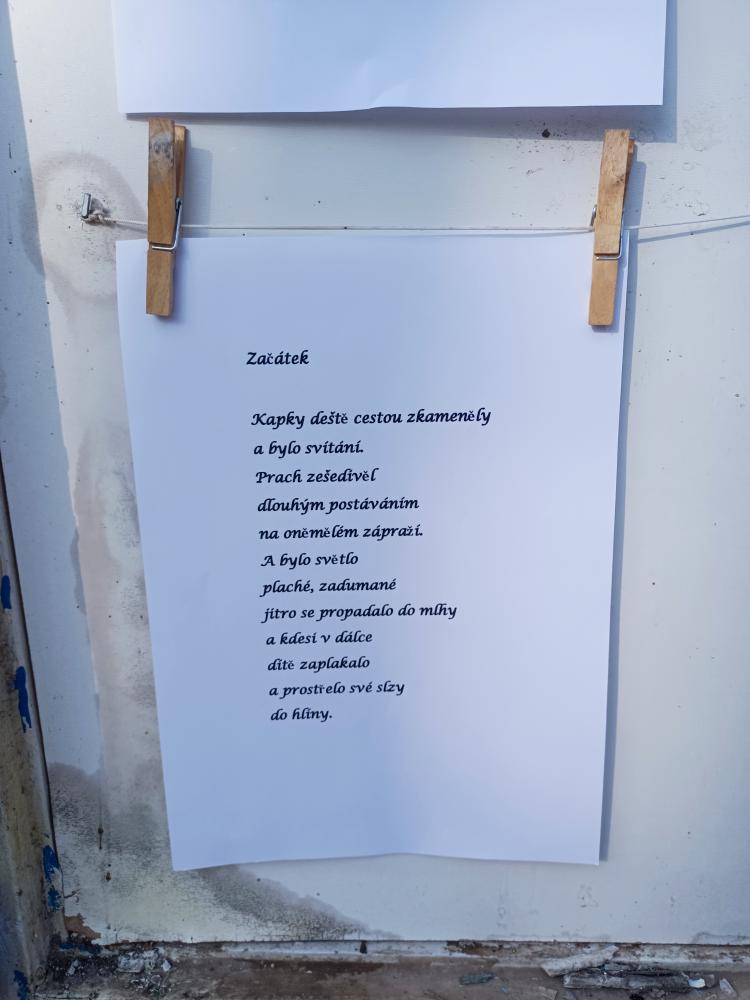 Začátek
Kapky deště cestou zkameněly
a bylo svítání.
Prach zešedivěl
dlouhým postáváním
na oněmělém zápraží.
A bylo světlo
plaché, zadumané
jitro se propadalo do mlhy
a kdesi v dálce
dítě zaplakalo
a prostřelo své slzy
do hlíny.